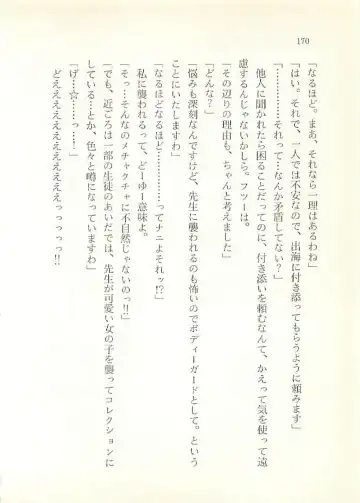 170
「なるほど。まあ、それなら一理はあるわね」
「はい。それで、一人では不安なので、出海に付き添ってもらうように頼みます」
「…………それって、なんか矛盾してない?」
他人に聞かれたら困ることだってのに、付き添いを頼むなんて、かえって気を使って遠
慮するんじゃないかしら。フツーは。
「その辺りの理由も、ちゃんと考えました」
「どんな?」
「悩みも深刻なんですけど、先生に襲われるのが怖いのでボディーガードとして。という
ことにいたしますわ」
「なるほどなるほど…………ってナニよそれッ!?」
私に襲われるって、どーゆー意味よ。
「そっ…そんなのメチャクチャに不自然じゃないのっ!!」
「でも、近ごろは一部の生徒のあいだでは、先生が可愛い女の子を襲ってコレクションに
している…とか、色々と噂になっていますわ」
「げ…☆…っ!」
どええええええええええええっっっっ!!